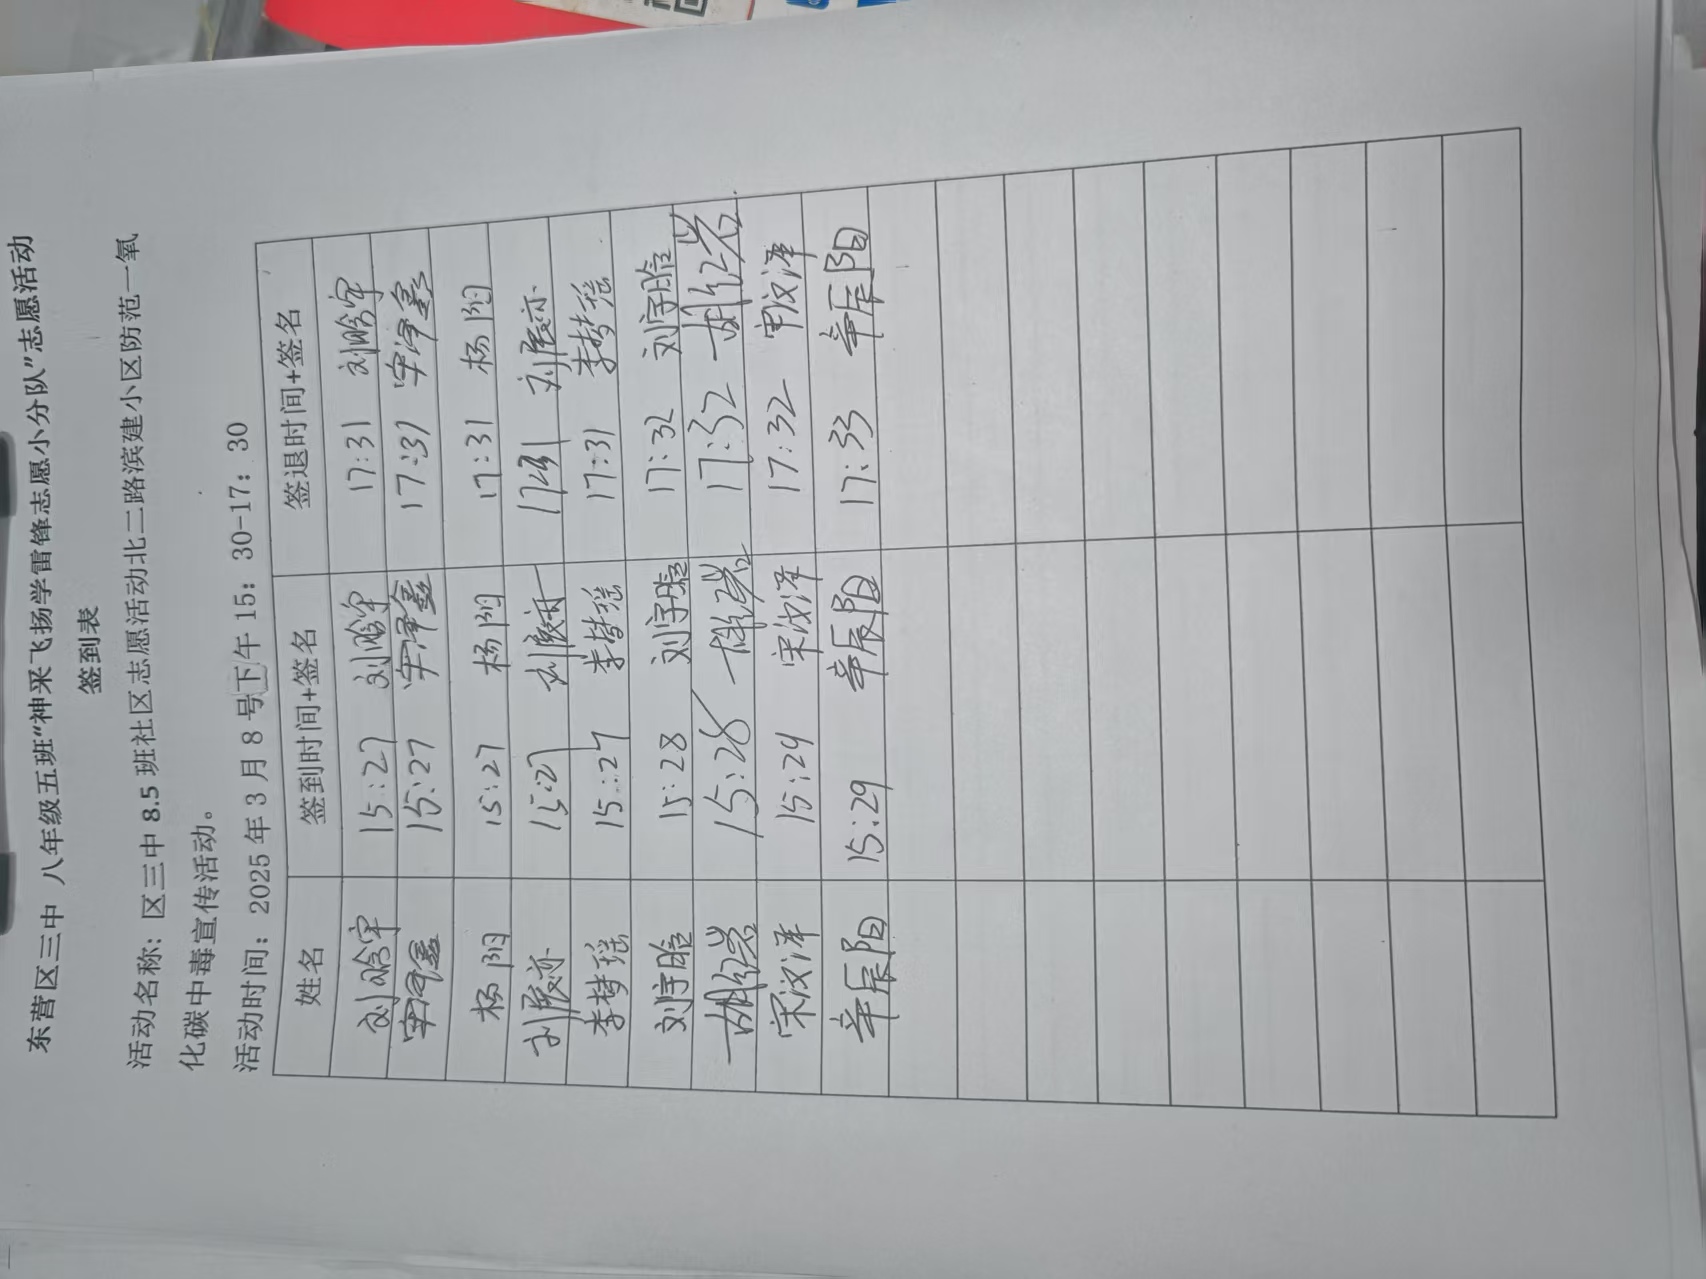 东营区三中 八年级五班“神采飞扬学雷锋志愿小分队”志愿活动
签到表
活动名称：区三中 8.5 班社区志愿活动北二路滨建小区防范一氧
化碳中毒宣传活动。
活动时间：2025 年 3 月 8 号下午 15：30-17：30
姓名 签到时间+签名 签退时间+签名
15:27 17:31
15:27 17:31
杨阳 15:27 杨阳 17:31 杨阳
刘展亦 15:27 刘展亦 刘展亦
李梦瑶 15:27 李梦瑶 17:31 李梦瑶
刘宇晗 15:28 刘宇晗 17:32 刘宇晗
15:28 17:32
宋汶泽 15:29 宋汶泽 17:32 宋汶泽
辛辰阳 15:29 辛辰阳 17:33 辛辰阳